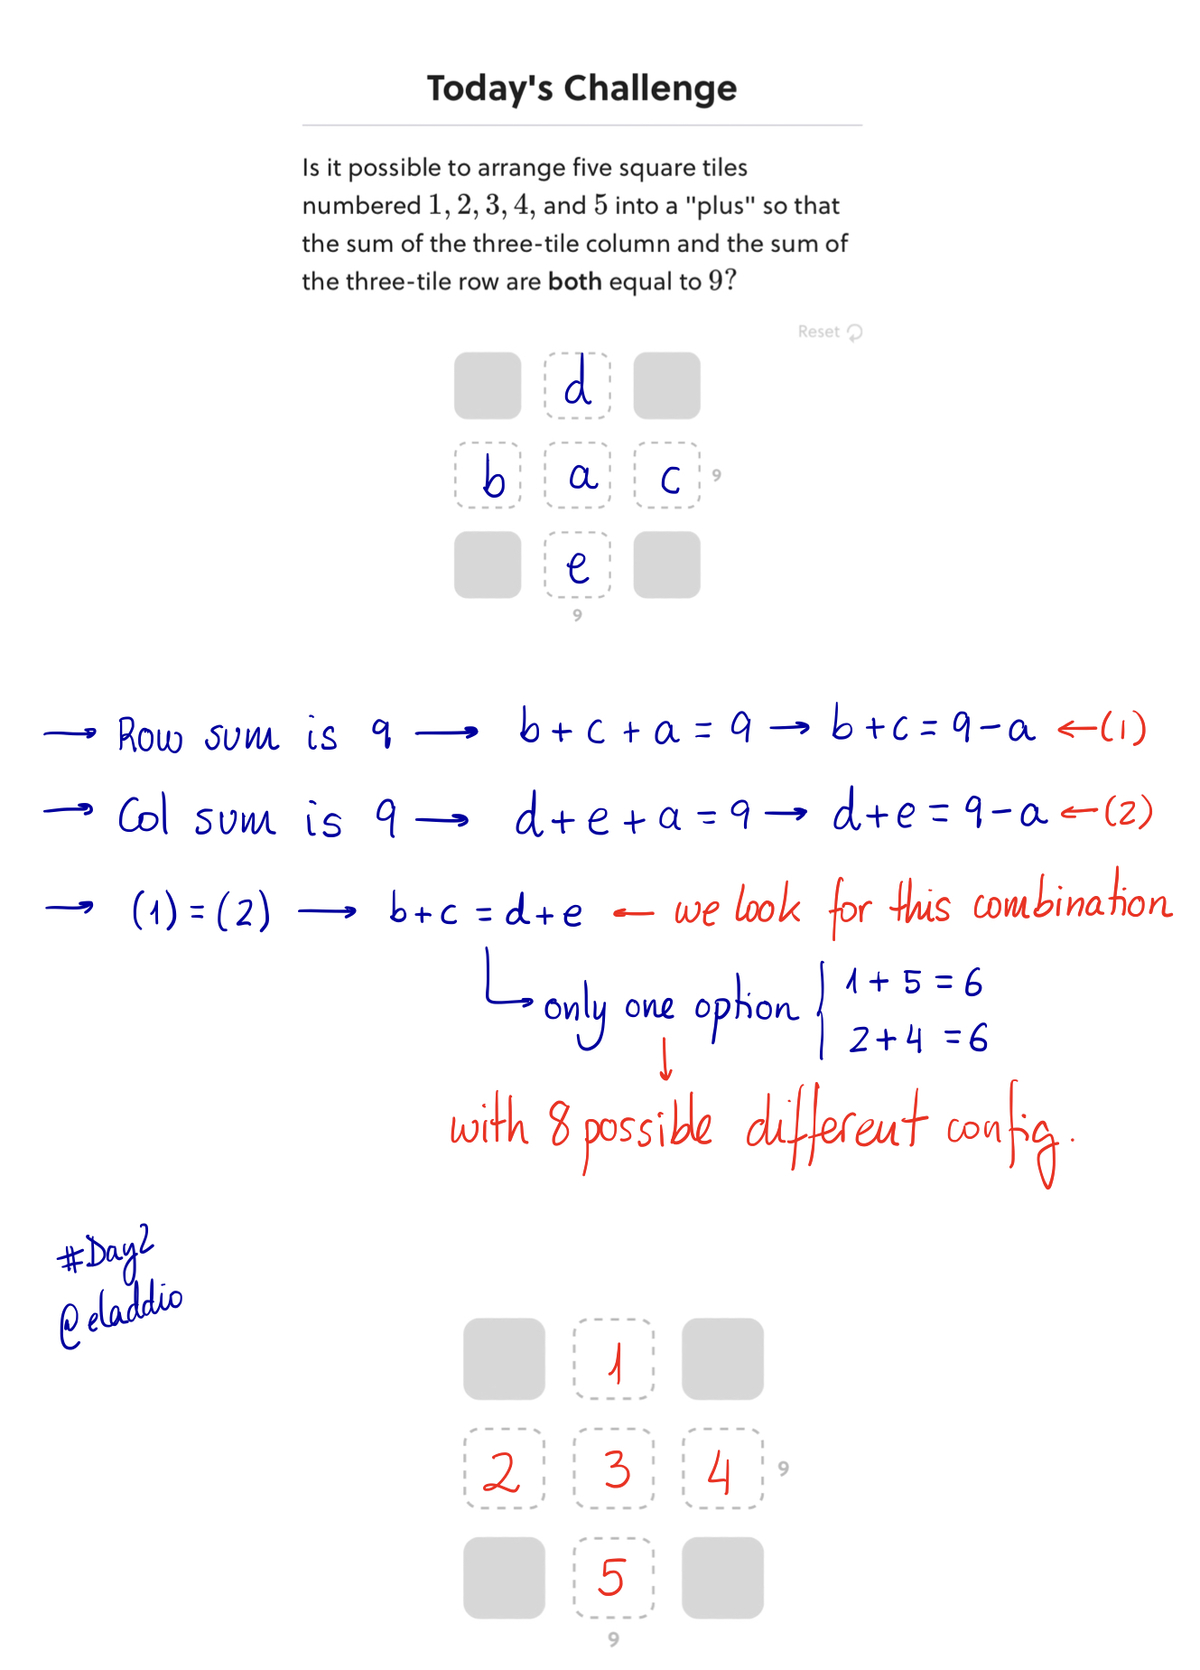 Today's Challenge
Is it possible to arrange five square tiles
numbered 1, 2, 3, 4, and 5 into a "plus" so that
the sum of the three-tile column and the sum of
the three-tile row are both equal to 9?
Reset
d
b a c 9
e
9
→ Row sum is 9 → b+c+a=9 → b+c=9-a ←(1)
→ Col sum is 9 → d+e+a=9 → d+e=9-a ←(2)
→ (1)=(2) → b+c=d+e ← we look for this combination
only one option { 1+5=6
2+4=6
↓
with 8 possible different config.
#Day2
@eladdio
1
2 3 4 9
5
9